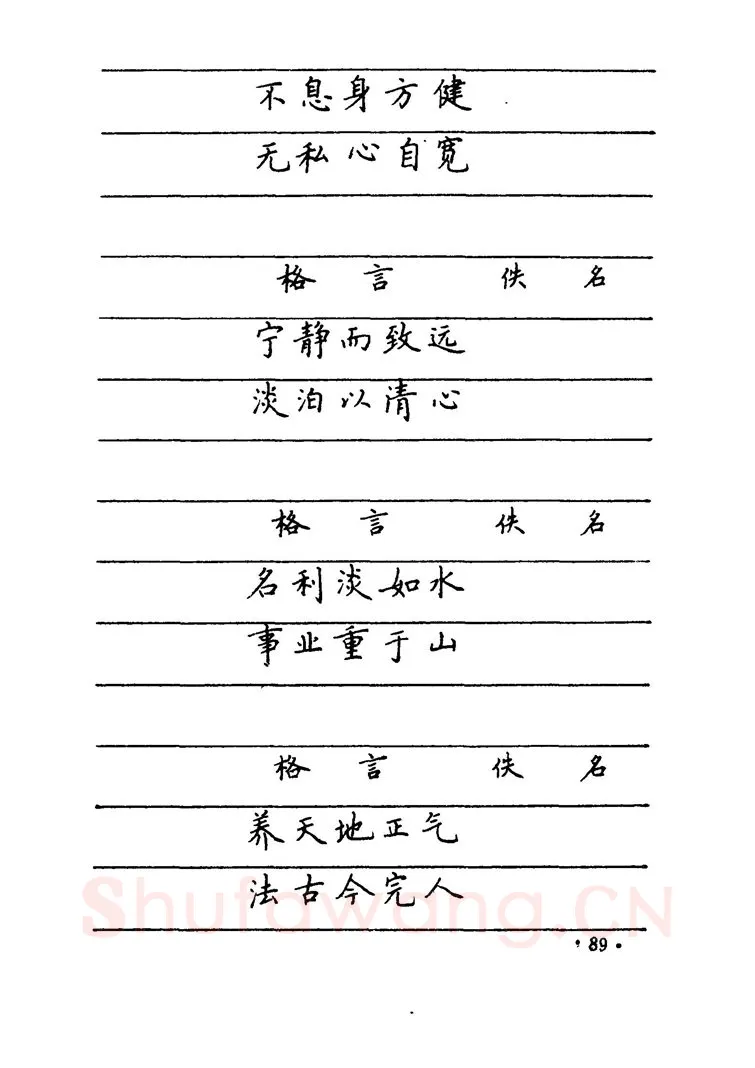 不息身方健
无私心自宽
格言 佚名
宁静而致远
淡泊以清心
格言 佚名
名利淡如水
事业重于山
格言 佚名
养天地正气
法古今完人
Shufawang.CN
·89·